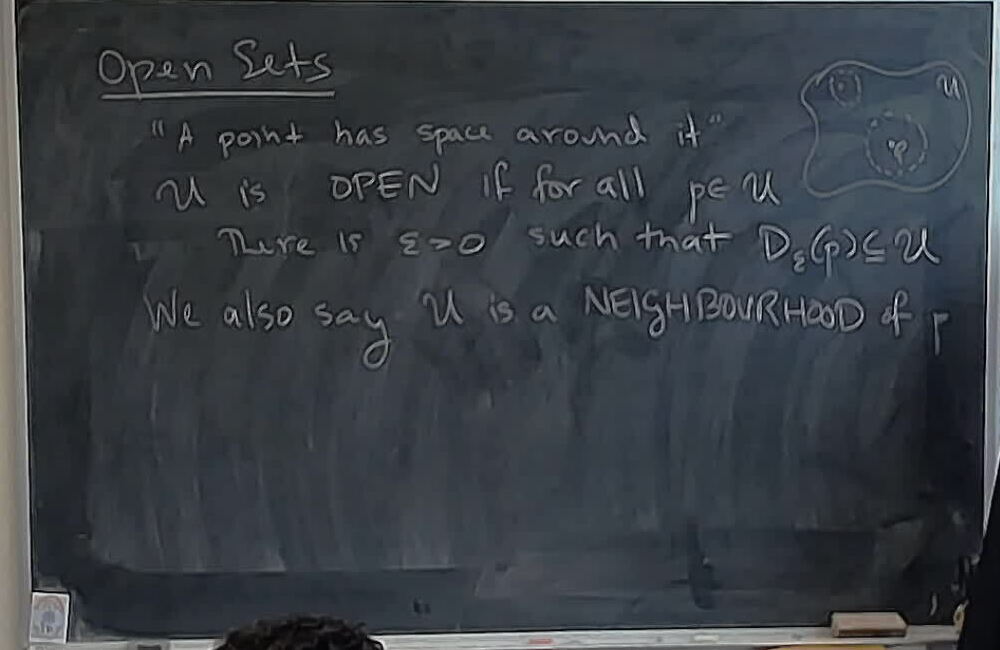 Open Sets
"A point has space around it"
U is OPEN if for all p ∈ U
There is ε>0 such that D_ε(p) ⊆ U
We also say U is a NEIGHBOURHOOD of p
U
p